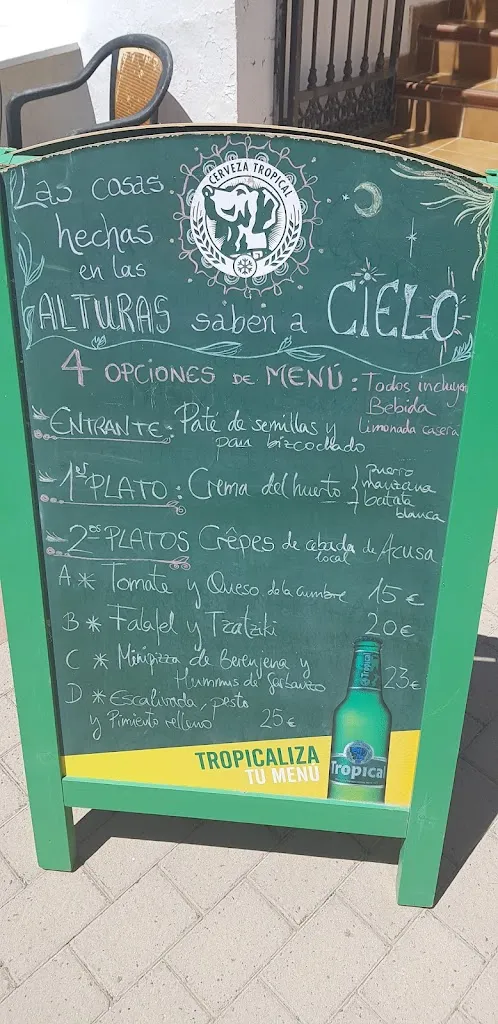 CERVEZA TROPICAL
Las cosas
hechas
en las
ALTURAS saben a CIELO
4 OPCIONES DE MENÚ: Todos incluyen
Bebida
Limonada casera
ENTRANTE: Paté de semillas y
pan bizcochado
1er PLATO: Crema del huerto
puerro
manzana
batata
blanca
2os PLATOS Crêpes de cebada de Acusa
local
A * Tomate y Queso de la cumbre 15€
B * Falafel y Tzatziki 20€
C * Minipizza de Berenjena y
Hummus de Garbanzo 23€
D * Escalivada, pesto
y Pimiento relleno 25€
TROPICALIZA
TU MENÚ
Tropical
Tropical